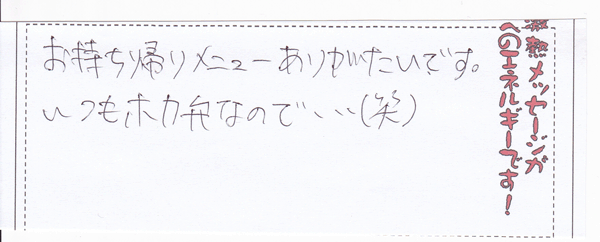 お持ち帰りメニューありがたいです。
いつもホカ弁なので、、、(笑)
熱メッセージが
へのエネルギーです！